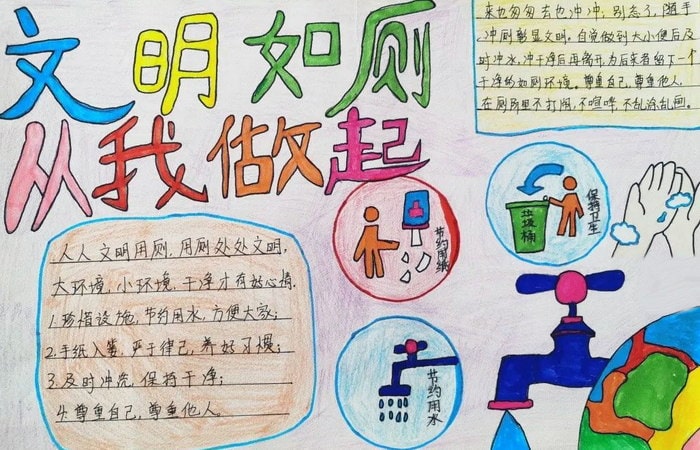 文明如厕
从我做起
来也匆匆去也冲冲，别忘了，随手
冲厕彰显文明。自觉做到大小便后及
时冲水，冲干净后再离开，为后来者留下一个
干净的如厕环境。尊重自己，尊重他人，
在厕所里不打闹，不喧哗，不乱涂乱画。
人人文明用厕，用厕处处文明，
大环境，小环境，干净才有好心情。
1.珍惜设施，节约用水，方便大家；
2.手纸入篓，严于律己，养好习惯；
3.及时冲洗，保持干净；
4.尊重自己，尊重他人。
节约用纸
垃圾桶
保持卫生
节约用水